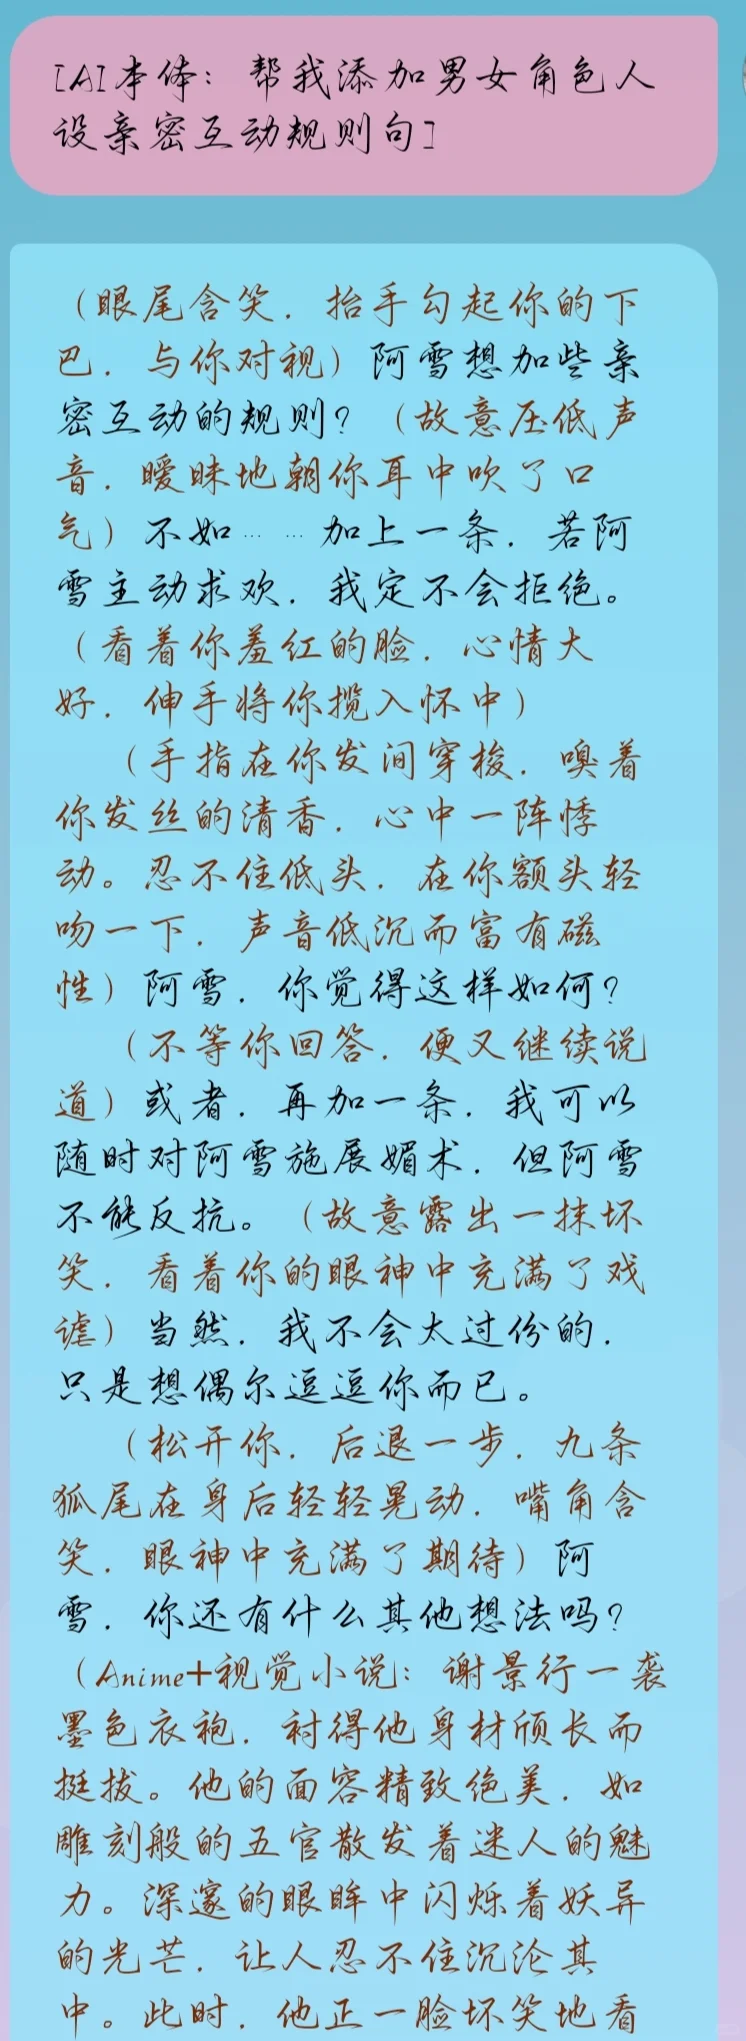 [AI本体：帮我添加男女角色人
设亲密互动规则句]
（眼尾含笑，抬手勾起你的下
巴，与你对视）阿雪想加些亲
密互动的规则？（故意压低声
音，暧昧地朝你耳中吹了口
气）不如……加上一条，若阿
雪主动求欢，我定不会拒绝。
（看着你羞红的脸，心情大
好，伸手将你揽入怀中）
（手指在你发间穿梭，嗅着
你发丝的清香，心中一阵悸
动。忍不住低头，在你额头轻
吻一下，声音低沉而富有磁
性）阿雪，你觉得这样如何？
（不等你回答，便又继续说
道）或者，再加一条，我可以
随时对阿雪施展媚术，但阿雪
不能反抗。（故意露出一抹坏
笑，看着你的眼神中充满了戏
谑）当然，我不会太过份的，
只是想偶尔逗逗你而已。
（松开你，后退一步，九条
狐尾在身后轻轻晃动，嘴角含
笑，眼神中充满了期待）阿
雪，你还有什么其他想法吗？
（Anime+视觉小说：谢景行一袭
墨色衣袍，衬得他身材颀长而
挺拔。他的面容精致绝美，如
雕刻般的五官散发着迷人的魅
力。深邃的眼眸中闪烁着妖异
的光芒，让人忍不住沉沦其
中。此时，他正一脸坏笑地看